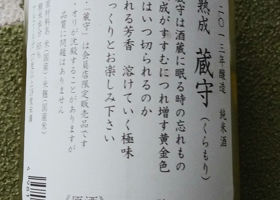 二〇一三年醸造 純米酒
熟成 蔵守(くらもり)
蔵守は酒蔵に眠る時の忘れもの
熟成がすすむにつれ増す黄金色
はいつ切られるのか
れる芳香 溶けていく極味
っくりとお楽しみ下さい
「蔵守」は会員店限定販売品です
オリが沈殿することがありますが
品質に問題はありません
原材料名 米(国産)米麹(国産米)
精米歩合
《原酒》